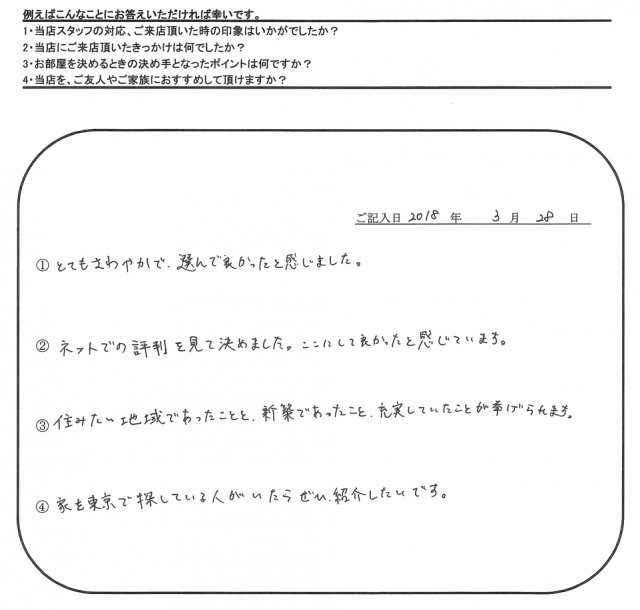 例えばこんなことにお答えいただければ幸いです。
1・当店スタッフの対応、ご来店頂いた時の印象はいかがでしたか？
2・当店にご来店頂いたきっかけは何でしたか？
3・お部屋を決めるときの決め手となったポイントは何ですか？
4・当店を、ご友人やご家族におすすめして頂けますか？
ご記入日 2018 年 3 月 28 日
① とてもさわやかで、選んで良かったと感じました。
② ネットでの評判を見て決めました。ここにして良かったと感じています。
③ 住みたい地域であったことと、新築であったこと、充実していたことが挙げられます。
④ 家を東京で探している人がいたらぜひ、紹介したいです。